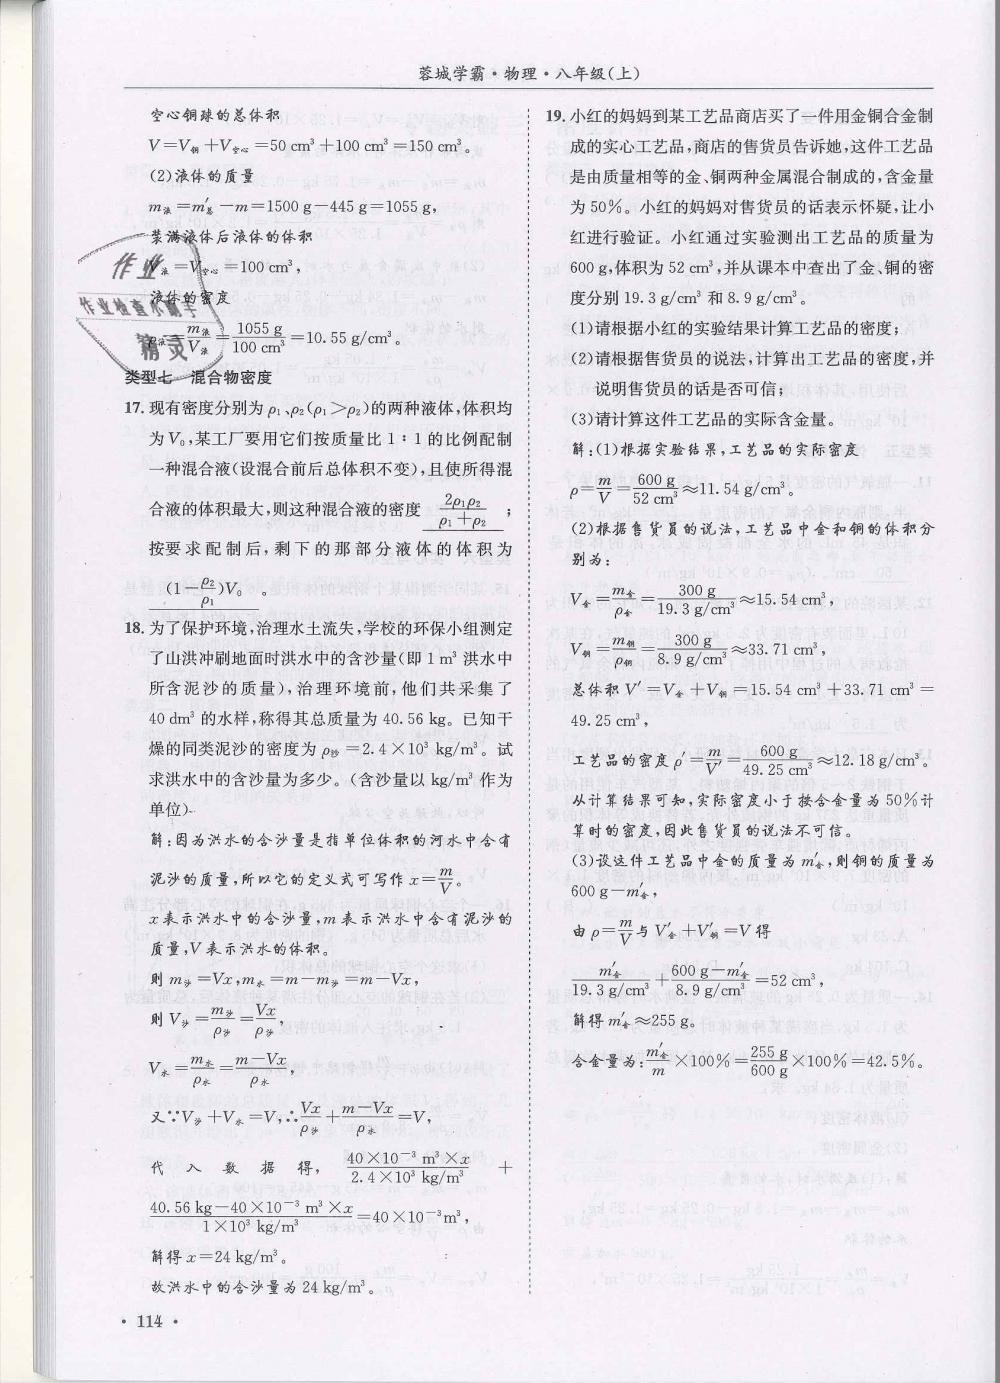 蓉城学霸·物理·八年级(上)
空心铜球的总体积
V=V铜+V空心=50 cm³+100 cm³=150 cm³。
(2)液体的质量
m液=m′总-m=1500 g-445 g=1055 g,
装满液体后液体的体积
V液=V空心=100 cm³,
液体的密度
ρ液=m液/V液=1055 g/100 cm³=10.55 g/cm³。
作业
作业检查小帮手
精灵
类型七 混合物密度
17. 现有密度分别为ρ₁、ρ₂(ρ₁>ρ₂)的两种液体,体积均
为V₀,某工厂要用它们按质量比1∶1的比例配制
一种混合液(设混合前后总体积不变),且使所得混
合液的体积最大,则这种混合液的密度 2ρ₁ρ₂/(ρ₁+ρ₂) ;
按要求配制后,剩下的那部分液体的体积为
(1-ρ₂/ρ₁)V₀ 。
18. 为了保护环境,治理水土流失,学校的环保小组测定
了山洪冲刷地面时洪水中的含沙量(即1 m³ 洪水中
所含泥沙的质量),治理环境前,他们共采集了
40 dm³ 的水样,称得其总质量为40.56 kg。已知干
燥的同类泥沙的密度为ρ沙=2.4×10³ kg/m³。试
求洪水中的含沙量为多少。(含沙量以 kg/m³ 作为
单位)
解:因为洪水的含沙量是指单位体积的河水中含有
泥沙的质量,所以它的定义式可写作x=m/V。
x表示洪水中的含沙量,m表示洪水中含有泥沙的
质量,V表示洪水的体积。
则m沙=Vx,m水=m-m沙=m-Vx,
则V沙=m沙/ρ沙=Vx/ρ沙,
V水=m水/ρ水=(m-Vx)/ρ水,
又∵V沙+V水=V,∴Vx/ρ沙+(m-Vx)/ρ水=V,
代入数据得,(40×10⁻³ m³×x)/(2.4×10³ kg/m³)+
(40.56 kg-40×10⁻³ m³×x)/(1×10³ kg/m³)=40×10⁻³m³,
解得x=24 kg/m³。
故洪水中的含沙量为24 kg/m³。
19. 小红的妈妈到某工艺品商店买了一件用金铜合金制
成的实心工艺品,商店的售货员告诉她,这件工艺品
是由质量相等的金、铜两种金属混合制成的,含金量
为50%。小红的妈妈对售货员的话表示怀疑,让小
红进行验证。小红通过实验测出工艺品的质量为
600 g,体积为52 cm³,并从课本中查出了金、铜的密
度分别19.3 g/cm³ 和8.9 g/cm³。
(1)请根据小红的实验结果计算工艺品的密度;
(2)请根据售货员的说法,计算出工艺品的密度,并
说明售货员的话是否可信;
(3)请计算这件工艺品的实际含金量。
解:(1)根据实验结果,工艺品的实际密度
ρ=m/V=600 g/52 cm³≈11.54 g/cm³。
(2)根据售货员的说法,工艺品中金和铜的体积分
别为:
V金=m金/ρ金=300 g/19.3 g/cm³≈15.54 cm³,
V铜=m铜/ρ铜=300 g/8.9 g/cm³≈33.71 cm³,
总体积V′=V金+V铜=15.54 cm³+33.71 cm³=
49.25 cm³,
工艺品的密度ρ′=m/V′=600 g/49.25 cm³≈12.18 g/cm³。
从计算结果可知,实际密度小于按含金量为50%计
算时的密度,因此售货员的说法不可信。
(3)设这件工艺品中金的质量为m′金,则铜的质量为
600 g-m′金,
由ρ=m/V与V′金+V′铜=V得
m′金/19.3 g/cm³+(600 g-m′金)/8.9 g/cm³=52 cm³,
解得m′金≈255 g。
含金量为:m′金/m×100%=255 g/600 g×100%=42.5%。
·114·